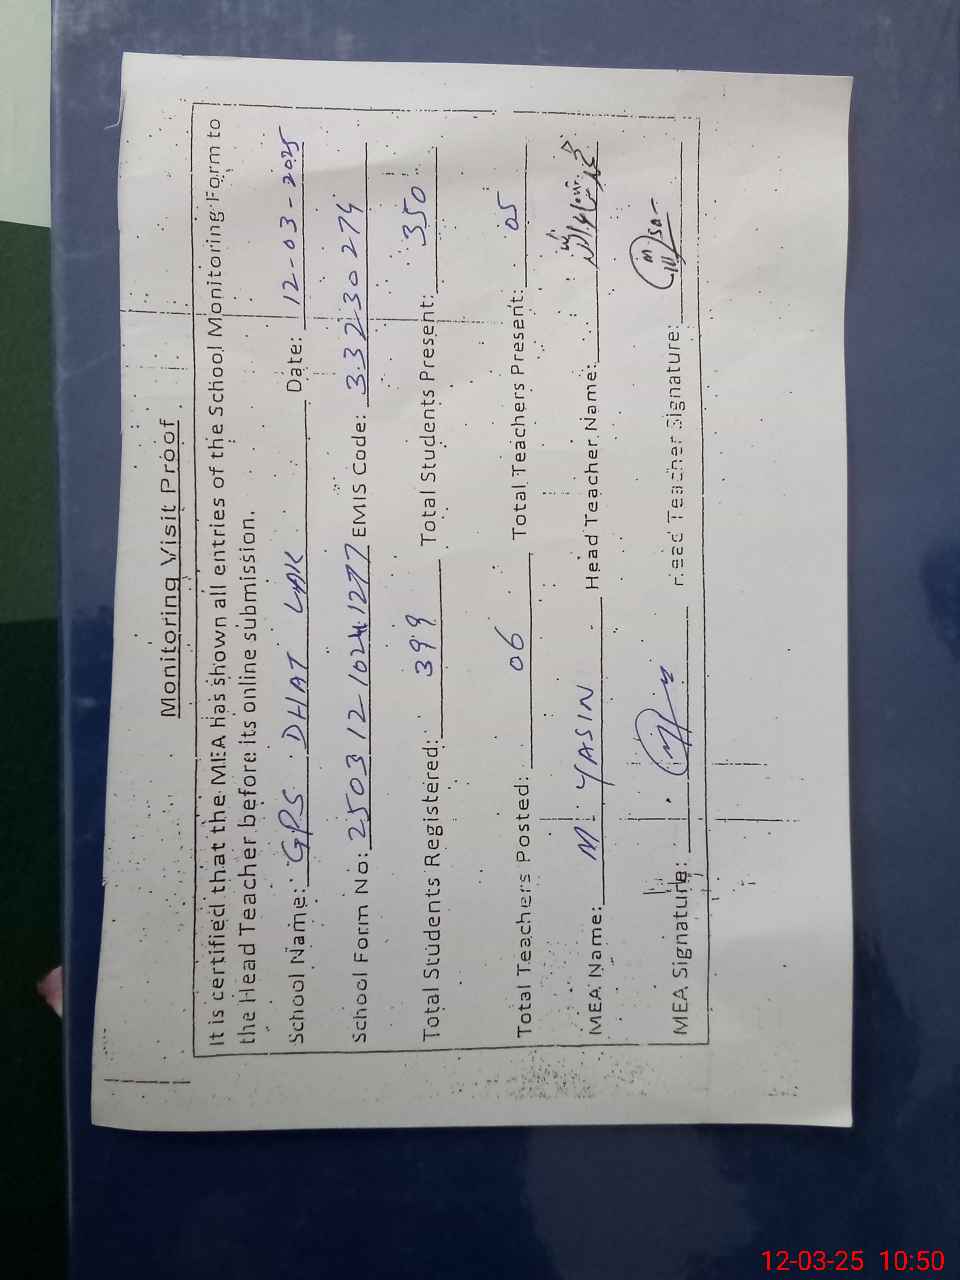 Monitoring Visit Proof
It is certified that the MEA has shown all entries of the School Monitoring Form to
the Head Teacher before its online submission.
School Name: GPS DHAT LAK Date: 12-03-2025
School Form No: EMIS Code: 33230274
Total Students Registered: 399 Total Students Present: 350
Total Teachers Posted: 06 Total Teachers Present: 05
MEA Name: M. YASIN Head Teacher Name:
MEA Signature: Head Teacher Signature:
12-03-25 10:50